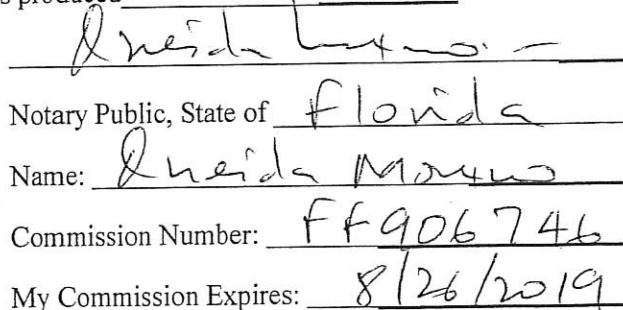 s produced
Oneida
Notary Public, State of Florida
Name: Oneida Moreno
Commission Number: FF906746
My Commission Expires: 8/26/2019